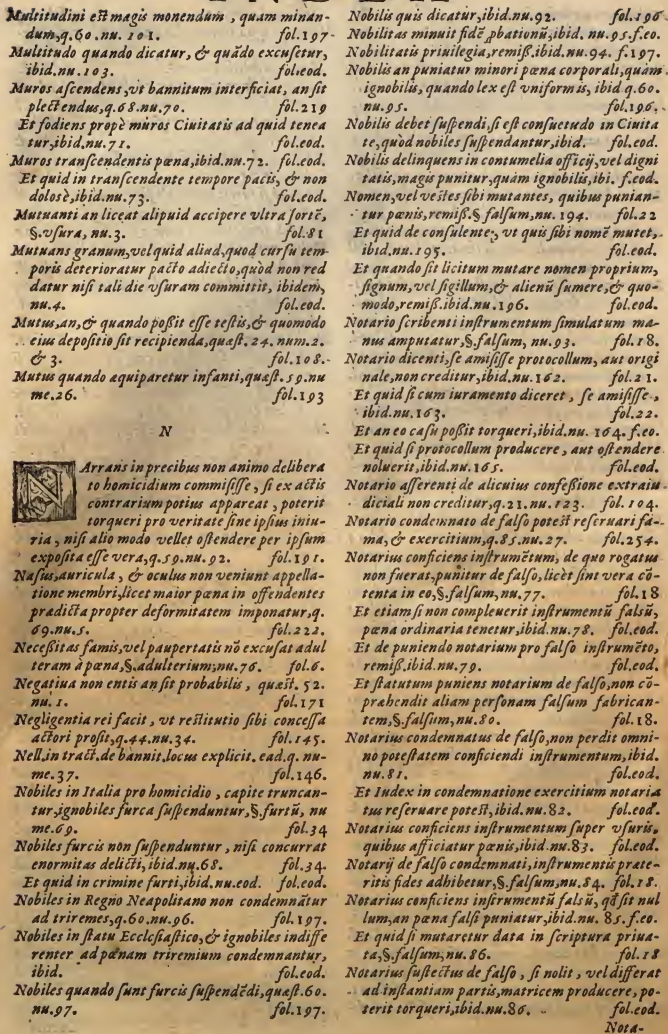 Multitudini est magis monendum, quam minan-
dum, q.60. nu. 101. fol.197
Multitudo quando dicatur, & quãdo excusetur,
ibid.nu.103. fol.eod.
Muros ascendens, vt bannitum interficiat, an sit
plectendus, q.68.nu.70. fol.219
Et fodiens propè muros Ciuitatis ad quid tenea
tur, ibid.nu.71. fol.eod.
Muros transcendentis pœna, ibid.nu.72. fol.eod.
Et quid in transcendente tempore pacis, & non
dolosè, ibid.nu.73. fol.eod.
Mutuanti an liceat alipuid accipere vltra sortē,
§.vsura, nu.3. fol.81
Mutuans granum, vel quid aliud, quod cursu tem-
poris deterioratur pacto adiecto, quòd non red
datur nisi tali die vsuram committit, ibidem,
nu.4. fol.eod.
Mutus, an, & quando possit esse testis, & quomodo
eius depositio sit recipienda, quæst.24.num.2.
& 3. fol.108.
Mutus quando æquiparetur infanti, quæst.59.nu
me.26. fol.193
N
NArrans in precibus non animo delibera
to homicidium commisisse, si ex actis
contrarium potius appareat, poterit
torqueri pro veritate sine ipsius iniu-
ria, nisi alio modo vellet ostendere per ipsum
exposita esse vera, q.59.nu.92. fol.191.
Nasus, auricula, & oculus non veniunt appella-
tione membri, licet maior pœna in offendentes
prædicta propter deformitatem imponatur, q.
69.nu.5. fol.222.
Necessitas famis, vel paupertatis nō excusat adul
teram à pœna, §.adulterium, nu.76. fol.6.
Negatiua non entis an sit probabilis, quæst.52.
nu.1. fol.171
Negligentia rei facit, vt restitutio sibi concessa
actori prosit, q.44.nu.34. fol.145.
Nell.in tract.de bannit.locus explicit.ead.q.nu-
me.37. fol.146.
Nobiles in Italia pro homicidio, capite truncan-
tur, ignobiles furca suspenduntur, §.furtū, nu
me.69. fol.34
Nobiles furcis non suspenduntur, nisi concurrat
enormitas delicti, ibid.nu.68. fol.34.
Et quid in crimine furti, ibid.nu.eod. fol.eod.
Nobiles in Regno Neapolitano non condemnātur
ad triremes, q.60.nu.96. fol.197.
Nobiles in statu Ecclesiastico, & ignobiles indiffe
renter ad pœnam triremium condemnantur,
ibid. fol.eod.
Nobiles quando sunt furcis suspendēdi, quæst.60.
nu.97. fol.197.
Nobilis quis dicatur, ibid.nu.92. fol.196
Nobilitas minuit fidē ꝓbationū, ibid. nu.95.f.eo.
Nobilitatis priuilegia, remiss.ibid.nu.94. f.197.
Nobilis an puniatur minori pœna corporali, quàm
ignobilis, quando lex est vniformis, ibid q.60.
nu.95. fol.196.
Nobilis debet suspendi, si est consuetudo in Ciuita
te, quòd nobiles suspendantur, ibid. fol.eod.
Nobilis delinquens in contumelia officij, vel digni
tatis, magis punitur, quàm ignobilis, ibi. f.eod.
Nomen, vel vestes sibi mutantes, quibus punian-
tur pœnis, remiss.§ falsum, nu. 194. fol.22
Et quid de consulente, vt quis sibi nomē mutet,
ibid.nu.195. fol.eod.
Et quando sit licitum mutare nomen proprium,
signum, vel sigillum, & alienū sumere, & quo-
modo, remiss.ibid.nu.196. fol.eod.
Notario scribenti instrumentum simulatum ma-
nus amputatur, §.falsum, nu.93. fol.18.
Notario dicenti, se amisisse protocollum, aut origi
nale, non creditur, ibid.nu.162. fol.21.
Et quid si cum iuramento diceret, se amisisse,
ibid.nu.163. fol.22.
Et an eo casu possit torqueri, ibid.nu. 164. f.eo.
Et quid si protocollum producere, aut ostendere
noluerit, ibid.nu.165. fol.eod.
Notario asserenti de alicuius confessione extraiu
diciali non creditur, q.21.nu.123. fol.104.
Notario condemnato de falso potest reseruari fa-
ma, & exercitium, q.85.nu.27. fol.254.
Notarius conficiens instrumētum, de quo rogatus
non fuerat, punitur de falso, licèt sint vera cō-
tenta in eo, §.falsum, nu.77. fol.18
Et etiam si non compleuerit instrumentū falsū,
pœna ordinaria tenetur, ibid.nu.78. fol.eod.
Et de puniendo notarium pro falso instrumēto,
remiss.ibid.nu.79. fol.eod.
Et statutum puniens notarium de falso, non cō-
præhendit aliam personam falsum fabrican-
tem, §.falsum, nu.80. fol.18.
Notarius condemnatus de falso, non perdit omni-
no potestatem conficiendi instrumentum, ibid.
nu.81. fol.eod.
Et Iudex in condemnatione exercitium notaria
tus reseruare potest, ibid.nu.82. fol.eod.
Notarius conficiens instrumentum super vsuris,
quibus afficiatur pœnis, ibid.nu.83. fol.eod.
Notarij de falso condemnati, instrumentis præte-
ritis fides adhibetur, §.falsum, nu.84. fol.18.
Notarius conficiens instrumentū falsū, qd sit nul
lum, an pœna falsi puniatur, ibid.nu. 85. f.eo.
Et quid si mutaretur data in scriptura priua-
ta, §.falsum, nu.86. fol.18
Notarius suspectus de falso, si nolit, vel differat
ad instantiam partis, matricem producere, po-
terit torqueri, ibid.nu.86. fol.eod.
Nota-